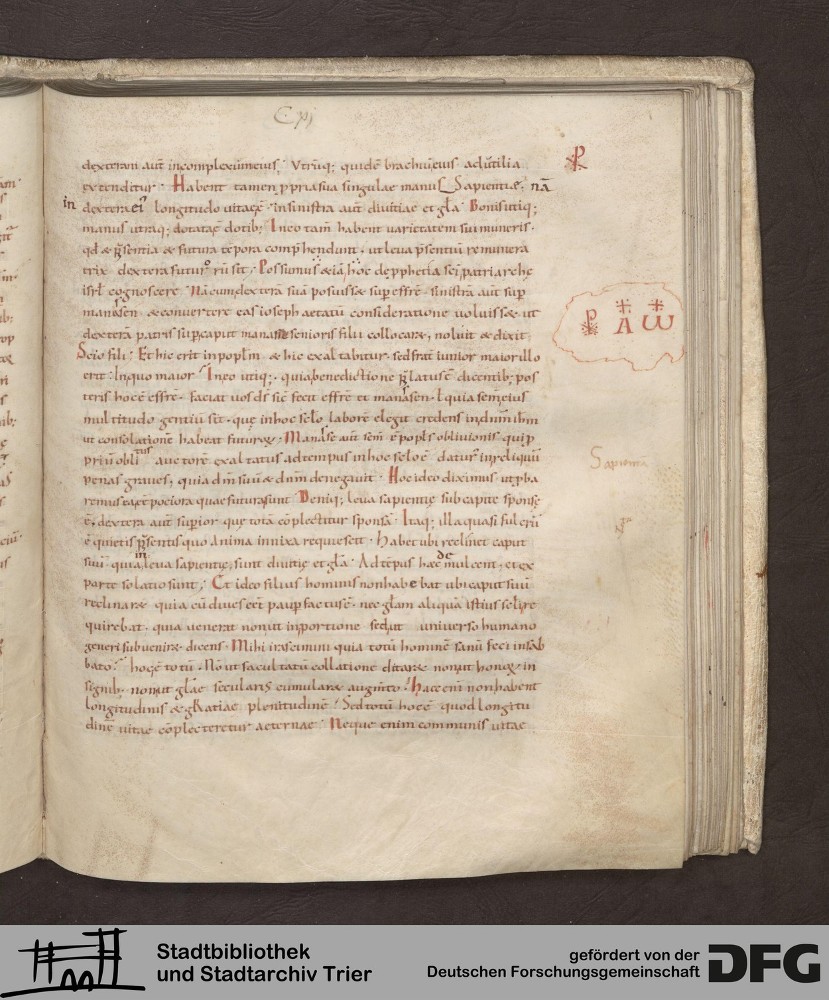 Cxj
dexteram aut̄ incomplexum eius. Vtrūq; quidē brachiū eius ad utilia
extenditur. Habent tamen p̱ prasua singulae manus Sapientiae. nā
in dextera ei longitudo vitae ē. In sinistra aut̄ diuitiae et gl̄a. Bonis utiq;
manus utraq; dotata ē dotib; In eo tam̄ habent varietatem sui muneris.
qđ & p̄sentia & futura tēpora comp̄hendunt. ut leua p̄sentiū remunera
trix dextera futuroruū sit. Possumus & iā hoc de p̱phetia sc̄i patriarche
isrl̄ cognoscere. Nā cum dexterā suā posuisset sup̱ effrē. sinistrā aut̄ sup̱
manassen & convertere eas ioseph aetatū consideratione voluisset ut
dexterā patris sup̱ caput manasse senioris filii collocaret, noluit & dixit
Scio fili. Et hic erit in popl̄m. & hic exaltabitur. sed frāt iunior maior illo
erit. In quo maior? In eo utiq;. quia benedictione p̄latus ē dicentib; pos
teris hoc ē effrē. Faciat uos ds̄ sic fecit effrē et manassen. l quia sem̄ eius
multitudo gentiū sit. que in hoc sc̄lo laborē elegit credens in dn̄m ih̄m
ut consolationē habeat futurorum. Manasse aut̄ sem̄ ē popl̄s oblivionis. qui p̱
priū oblitus auctorē exaltatus ad tempus in hoc sc̄lo ē datur in reliquiū
penas graves, quia dm̄ suū & dn̄m denegavit. Hoc ideo diximus ut p̱ba
remus
Deniq; leva sapientię sub capite sponsę
ē, dextera aut̄ sup̱ior quę totā cōplectitur sponsā. Itaq; illa quasi fulcrū
ē quietis p̄sentis quo anima innixa requiescit. Habet ubi reclinet caput
suū. quia in leva sapientię, sunt divitię et gl̄a. Ad tēpus haec demulcent, et ex
parte solatio sunt; Et ideo filius hominis non habebat ubi caput suū
reclinaret quia cū dives eēt paup̱ factus ē. nec gl̄am aliquā istius sc̄li re
quirebat. quia venerat non ut in portione sed ut universo humano
generi subveniret. dicens. Mihi irascimini quia totū hominē sanū feci in sab
bato? hoc ē totū. Nō ut facultatū collatione ditaret non ut honore in
signib; non ut gl̄ae secularis cumularet augm̄to. Haec eni̅ non habent
longitudinis & gratiae plenitudinē. Sed totū hoc ē quod longitu
dinē vitae cōplecteretur aeternae. Neque enim communis vitae
A ω
Sapientia
Stadtbibliothek
und Stadtarchiv Trier
gefördert von der
Deutschen Forschungsgemeinschaft
DFG